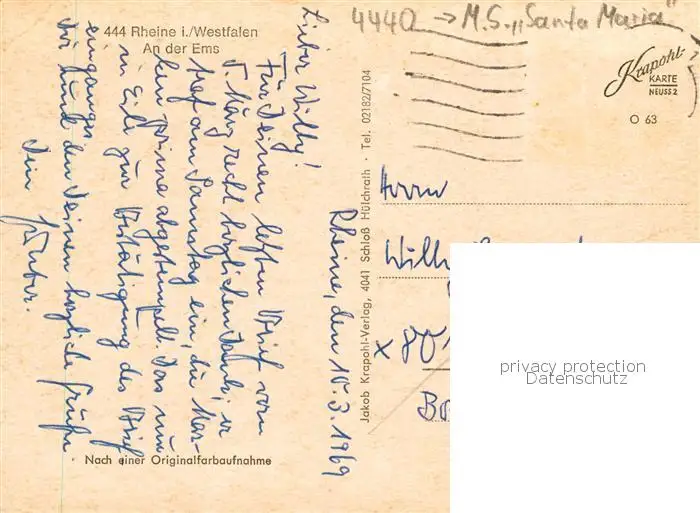 444 Rheine i./Westfalen
An der Ems
4440 → M.S. „Santa Maria"
Krapohl-
KARTE
NEUSS 2
O 63
Rheine, den 10.3.1969
Lieber Willy!
Für Deinen letzten Brief vom
5. März recht herzlichen Dank, er
traf am Samstag ein, die Mar-
ken prima abgestempelt. Das nur
in Eile zur Bestätigung des Brief
einganges.
Dir und den Deinen herzliche Grüße
Dein
Nach einer Originalfarbaufnahme
Jakob Krapohl-Verlag, 4041 Schloß Hülchrath · Tel. 02182/7104
Herrn
Willy
x 801
privacy protection
Datenschutz